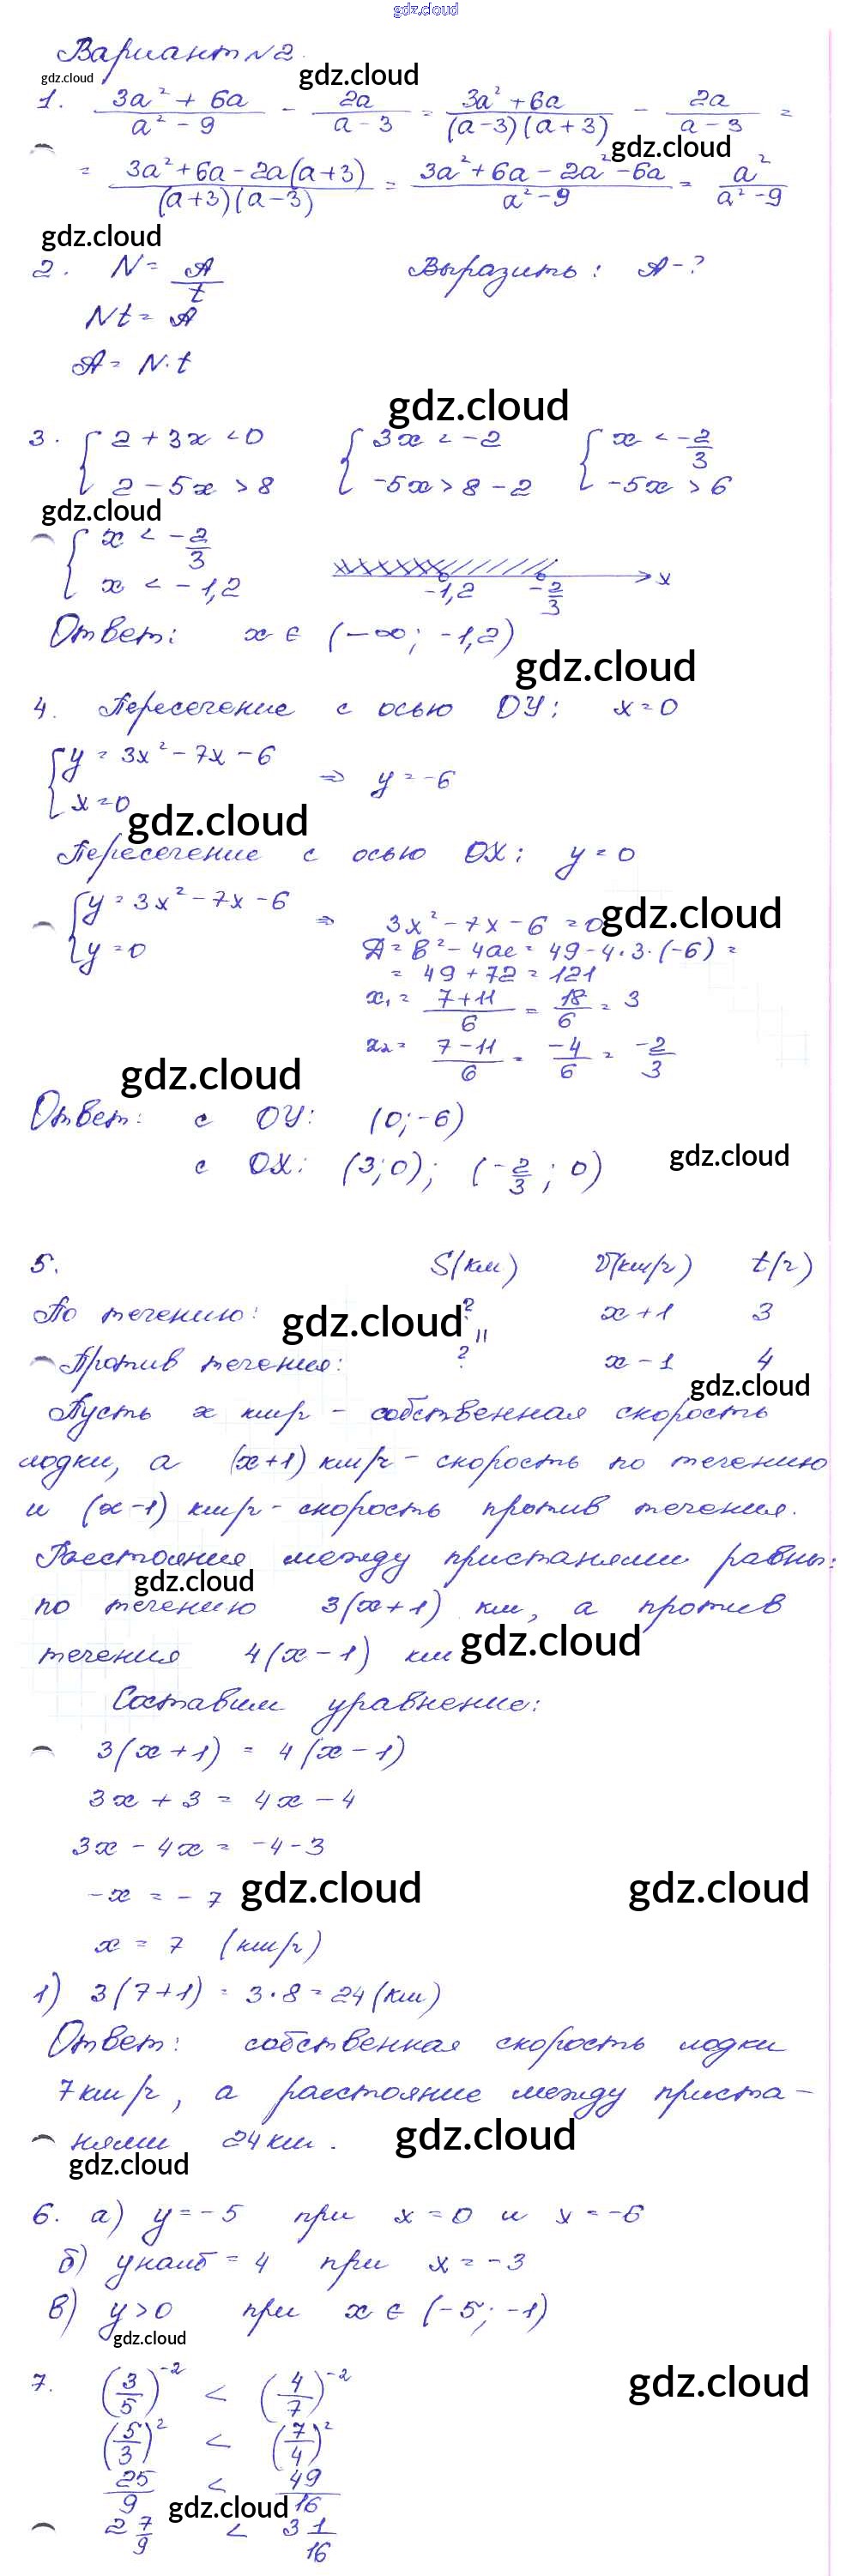 gdz.cloud
Вариант №2.
gdz.cloud gdz.cloud
1. (3a² + 6a)/(a² - 9) - 2a/(a - 3) = (3a² + 6a)/((a-3)(a+3)) - 2a/(a - 3) =
gdz.cloud
= (3a² + 6a - 2a(a+3))/((a+3)(a-3)) = (3a² + 6a - 2a² - 6a)/(a² - 9) = a²/(a² - 9)
gdz.cloud
2. N = A/t Выразить: A - ?
Nt = A
A = N·t
gdz.cloud
3. { 2 + 3x < 0 { 3x < -2 { x < -2/3
2 - 5x > 8 -5x > 8 - 2 -5x > 6
gdz.cloud
{ x < -2/3
x < -1,2 -1,2 -2/3 x
Ответ: x ∈ (-∞; -1,2)
gdz.cloud
4. Пересечение с осью ОУ: x = 0
{ y = 3x² - 7x - 6 ⇒ y = -6
x = 0
gdz.cloud
Пересечение с осью ОХ: y = 0
{ y = 3x² - 7x - 6 ⇒ 3x² - 7x - 6 = 0
gdz.cloud
y = 0 Д = в² - 4ас = 49 - 4·3·(-6) =
= 49 + 72 = 121
x₁ = (7+11)/6 = 18/6 = 3
x₂ = (7-11)/6 = -4/6 = -2/3
gdz.cloud
Ответ: с ОУ: (0; -6)
с ОХ: (3; 0); (-2/3; 0)
gdz.cloud
5. S(км) V(км/ч) t(ч)
По течению: ? x + 1 3
gdz.cloud "
Против течения: ? x - 1 4
gdz.cloud
Пусть x км/ч - собственная скорость
лодки, а (x+1) км/ч - скорость по течению
и (x-1) км/ч - скорость против течения.
Расстояние между пристанями равны:
gdz.cloud
по течению 3(x+1) км, а против
течения 4(x-1) км
gdz.cloud
Составим уравнение:
3(x+1) = 4(x-1)
3x + 3 = 4x - 4
3x - 4x = -4 - 3
-x = -7
gdz.cloud gdz.cloud
x = 7 (км/ч)
1) 3(7+1) = 3·8 = 24 (км)
Ответ: собственная скорость лодки
7 км/ч, а расстояние между приста-
нями 24 км.
gdz.cloud
gdz.cloud
6. а) y = -5 при x = 0 и x = -6
б) y наиб = 4 при x = -3
в) y > 0 при x ∈ (-5; -1)
gdz.cloud
7. (3/5)⁻² < (4/7)⁻²
gdz.cloud
(5/3)² < (7/4)²
25/9 < 49/16
gdz.cloud
2 7/9 < 3 1/16